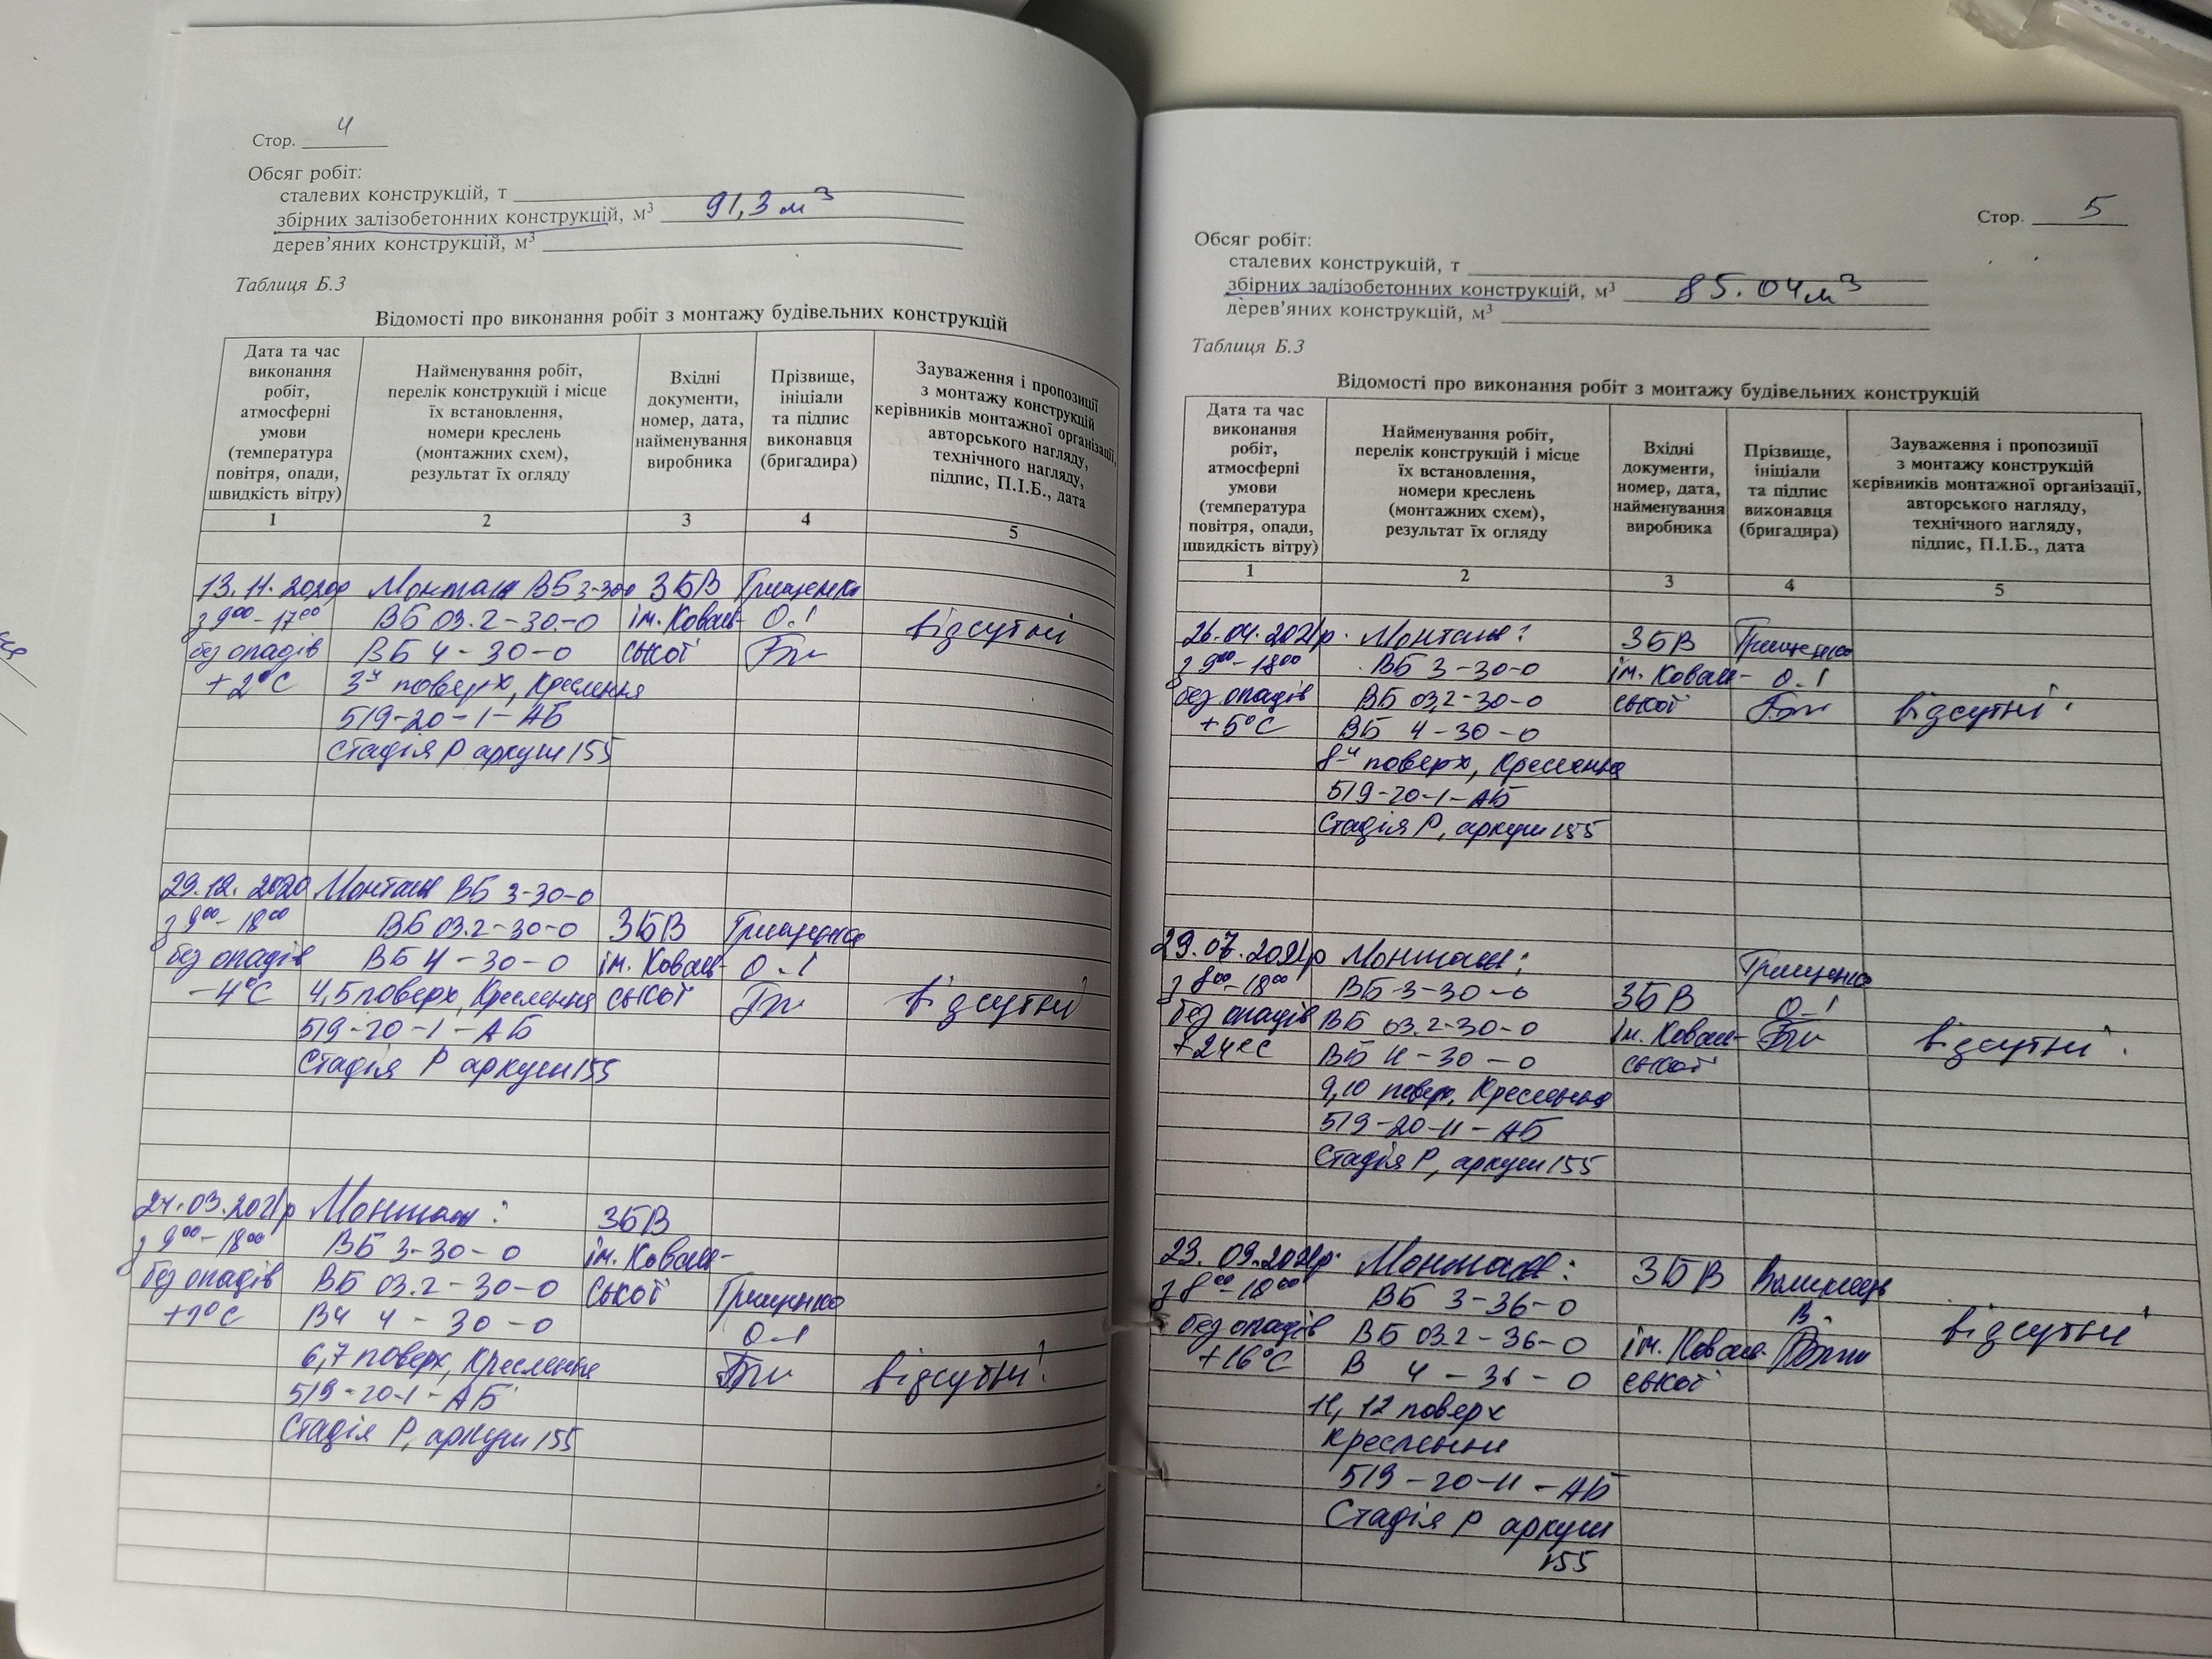 Стор. 4
Обсяг робіт:
сталевих конструкцій, т
збірних залізобетонних конструкцій, м³ 91,3 м³
дерев'яних конструкцій, м³
Таблиця Б.3
Відомості про виконання робіт з монтажу будівельних конструкцій
Дата та час виконання робіт, атмосферні умови (температура повітря, опади, швидкість вітру)
Найменування робіт, перелік конструкцій і місце їх встановлення, номери креслень (монтажних схем), результат їх огляду
Вхідні документи, номер, дата, найменування виробника
Прізвище, ініціали та підпис виконавця (бригадира)
Зауваження і пропозиції з монтажу конструкцій керівників монтажної організації, авторського нагляду, технічного нагляду, підпис, П.І.Б., дата
1 2 3 4 5
13.11.2020р Монтаж ВБ 3-30-0 ЗБВ Грищенко
з 9⁰⁰-17⁰⁰ ВБ 03.2-30-0 ім. Коваль- О.І відсутні
без опадів ВБ 4-30-0 ської
+2°С 3й поверх, Креслення
519-20-1-АБ
Стадія Р аркуш 155
29.12.2020 Монтаж ВБ 3-30-0
з 9⁰⁰-18⁰⁰ ВБ 03.2-30-0 ЗБВ Грищенко
без опадів ВБ 4-30-0 ім. Коваль- О.І
-4°С 4,5 поверх, Креслення ської відсутні
519-20-1-АБ
Стадія Р аркуш 155
24.03.2021р Монтаж: ЗБВ
з 9⁰⁰-18⁰⁰ ВБ 3-30-0 ім. Коваль-
без опадів ВБ 03.2-30-0 ської Грищенко
ВЧ 4-30-0 О.І
6,7 поверх, Креслення відсутні
519-20-1-АБ
Стадія Р, аркуш 155
Стор. 5
Обсяг робіт:
сталевих конструкцій, т
збірних залізобетонних конструкцій, м³ 85.04 м³
дерев'яних конструкцій, м³
Таблиця Б.3
Відомості про виконання робіт з монтажу будівельних конструкцій
Дата та час виконання робіт, атмосферні умови (температура повітря, опади, швидкість вітру)
Найменування робіт, перелік конструкцій і місце їх встановлення, номери креслень (монтажних схем), результат їх огляду
Вхідні документи, номер, дата, найменування виробника
Прізвище, ініціали та підпис виконавця (бригадира)
Зауваження і пропозиції з монтажу конструкцій керівників монтажної організації, авторського нагляду, технічного нагляду, підпис, П.І.Б., дата
1 2 3 4 5
26.04.2021р. Монтаж: ЗБВ Грищенко
з 9⁰⁰-18⁰⁰ ВБ 3-30-0 ім. Коваль- О.І
без опадів ВБ 03,2-30-0 ської відсутні
+5°С ВБ 4-30-0
8й поверх, Креслення
519-20-1-АБ
Стадія Р, аркуш 155
29.07.2021р Монтаж: Грищенко
з 8⁰⁰-18⁰⁰ ВБ 3-30-0 ЗБВ О.І
без опадів ВБ 03.2-30-0 ім. Коваль- відсутні
+24°С ВБ 4-30-0 ської
9,10 поверх, Креслення
519-20-11-АБ
Стадія Р, аркуш 155
23.09.2021р. Монтаж: ЗБВ
з 8⁰⁰-18⁰⁰ ВБ 3-36-0 В.
без опадів ВБ 03.2-36-0 ім. Коваль- відсутні
+16°С В 4-36-0 ської
11, 12 поверх
креслення
519-20-11-АБ
Стадія Р аркуш
155